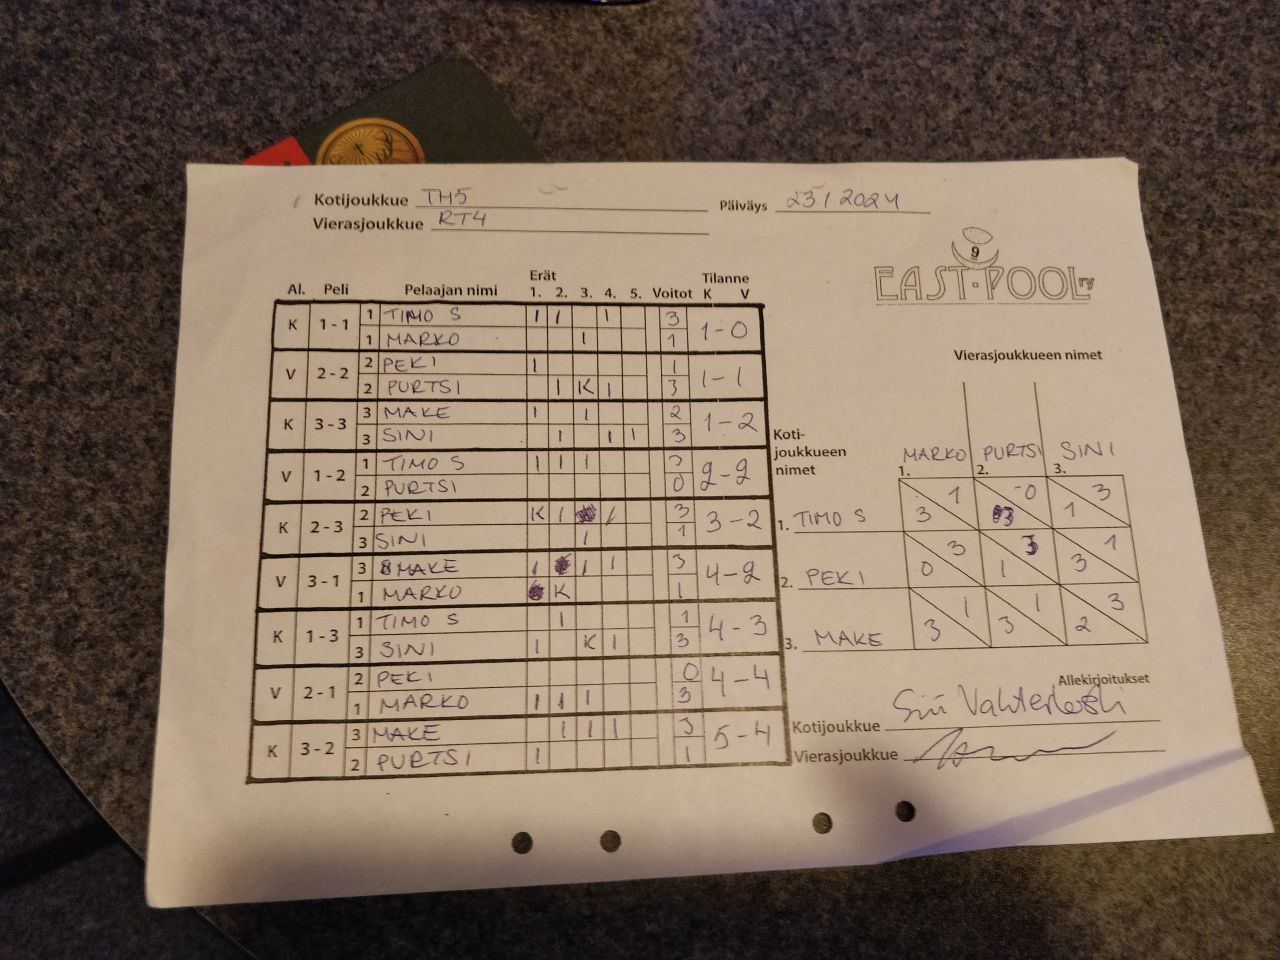 Kotijoukkue TH5
Vierasjoukkue RT4
Päiväys 23.1.2024
9
EAST-POOL ry
Erät Tilanne
Al. Peli Pelaajan nimi 1. 2. 3. 4. 5. Voitot K V
K 1-1 1 TIMO S I I I 3 1-0
1 MARKO I 1
V 2-2 2 PEKI I 1 1-1
2 PURTSI I K I 3
K 3-3 3 MAKE I I 2 1-2
3 SINI I I I 3
V 1-2 1 TIMO S I I I 3 2-2
2 PURTSI 0
K 2-3 2 PEKI K I I 3 3-2
3 SINI I 1
V 3-1 3 MAKE I I I 3 4-2
1 MARKO K 1
K 1-3 1 TIMO S I 1 4-3
3 SINI I K I 3
V 2-1 2 PEKI 0 4-4
1 MARKO I I I 3
K 3-2 3 MAKE I I I 3 5-4
2 PURTSI I 1
Vierasjoukkueen nimet
Koti-
joukkueen
nimet
MARKO PURTSI SINI
1. 2. 3.
1. TIMO S 3 1 3 0 1 3
2. PEKI 0 3 1 3 3 1
3. MAKE 3 1 3 1 2 3
Allekirjoitukset
Kotijoukkue Sini
Vierasjoukkue